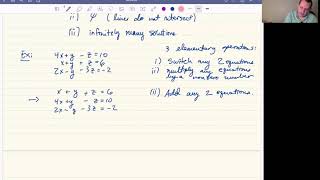 ii) Ψ (lines do not intersect)
iii) infinitely many solutions
3 elementary operations:
Ex:
4x+y -z=10
x+y +z=6
2x-y -3z=-2
i) Switch any 2 equations
ii) multiply any equations by a nonzero number
x + y + z = 6
4x+y - z=10
2x - y - 3z = -2
iii) Add any 2 equations.